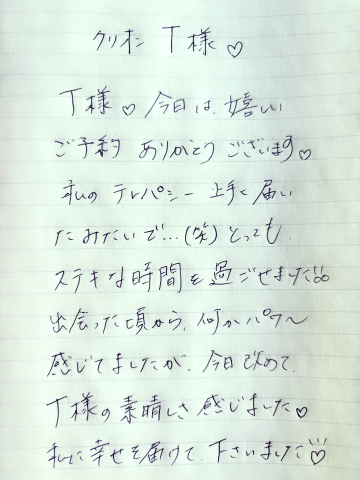 クリオネ T様♡
T様♡今日は、嬉しい
ご予約 ありがとう ございます♡
私の テレパシー 上手く届い
たみたいで…(笑)とっても、
ステキな時間を過ごせました
出会った頃から、何かパワ〜
感じてましたが、今日改めて、
T様の素晴しさ 感じました♡
私に幸せを届けて、下さいました♡